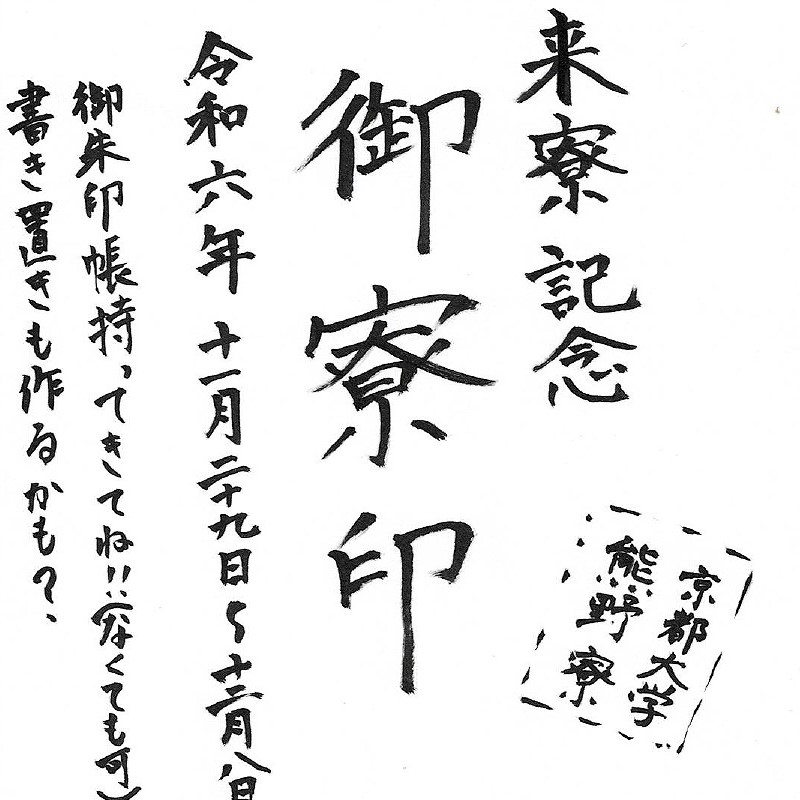 来寮記念
御寮印
京都大学
熊野寮
令和六年十一月二十九日〜十二月八日
御朱印帳持ってきてね!!(なくても可)
書き置きも作るかも?、